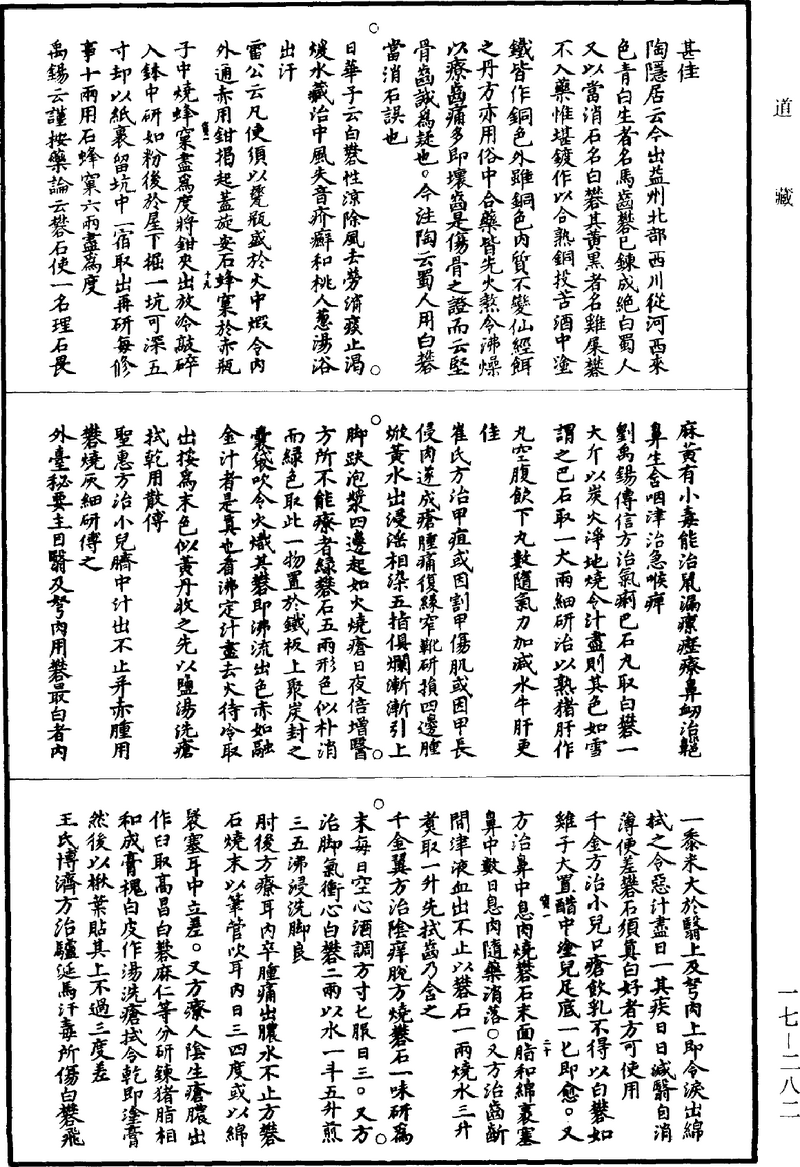 道藏
甚佳
陶隱居云今出益州北部西川從河西來
色青白生者名馬齒礬已鍊成絕白蜀人
又以當消石名白礬其黃黑者名雞屎礬
不入藥惟堪鍍作以合熟銅投苦酒中塗
鐵皆作銅色外雖銅色內質不變仙經餌
之丹方亦用俗中合藥皆先火熬令沸燥
以療齒痛多即壞齒是傷骨之證而云堅
骨齒誠為疑也。今注陶云蜀人用白礬
當消石誤也
日華子云白礬性涼除風去勞消痰止渴
煖水藏治中風失音疥癬和桃人蔥湯浴
出汗
雷公云凡使須以甆瓶盛於火中煆令內
外通赤用鉗揭起蓋旋安石蜂窠於赤瓶
子中燒蜂窠盡為度將鉗夾出放冷敲碎
入鉢中研如粉後於屋下掘一坑可深五
寸却以紙裹留坑中一宿取出再研每修
事十兩用石蜂窠六兩盡為度
禹錫云謹按藥論云礬石使一名理石畏
麻黃有小毒能治鼠漏瘰癧療鼻衂治齆
鼻生含咽津治急喉痺
劉禹錫傳信方治氣痢巴石丸取白礬一
大斤以炭火淨地燒令汁盡則其色如雪
謂之巴石取一大兩細研治以熟豬肝作
丸空腹飲下丸數隨氣力加減水牛肝更
佳
崔氏方治甲疽或因割甲傷肌或因甲長
侵肉遂成瘡腫痛復緣窄靴研損四邊腫
焮黃水出浸淫相染五指俱爛漸漸引上
脚趺泡漿四邊起如火燒瘡日夜倍增醫
方所不能療者綠礬石五兩形色似朴消
而綠色取此一物置於鐵板上聚炭封之
囊袋吹令火熾其礬即沸流出色赤如融
金汁者是真也看沸定汁盡去火待冷取
出按為末色似黃丹收之先以鹽湯洗瘡
拭乾用散傅
聖惠方治小兒臍中汁出不止并赤腫用
礬燒灰細研傅之
外臺秘要主目翳及弩肉用礬最白者內
一黍米大於翳上及弩肉上即令淚出綿
拭之令惡汁盡日一其疾日日減翳自消
薄便差礬石須真白好者方可使用
千金方治小兒口瘡飲乳不得以白礬如
雞子大置醋中塗兒足底二七即愈。又
方治鼻中息肉燒礬石末面脂和綿裹塞
鼻中數日息肉隨藥消落。又方治齒齗
間津液血出不止以礬石一兩燒水三升
煑取一升先拭齒乃含之
千金翼方治陰痒脫方燒礬石一味研為
末每日空心酒調方寸匕服日三。又方
治脚氣衝心白礬二兩以水一斗五升煎
三五沸浸洗脚良
肘後方療耳內卒腫痛出膿水不止方礬
石燒末以筆管吹耳內日三四度或以綿
裛塞耳中立差。又方療人陰生瘡膿出
作臼取高昌白礬麻仁等分研鍊豬脂相
和成膏槐白皮作湯洗瘡拭令乾即塗膏
然後以楸葉貼其上不過三度差
王氏博濟方治驢涎馬汗毒所傷白礬飛
一七—二八二